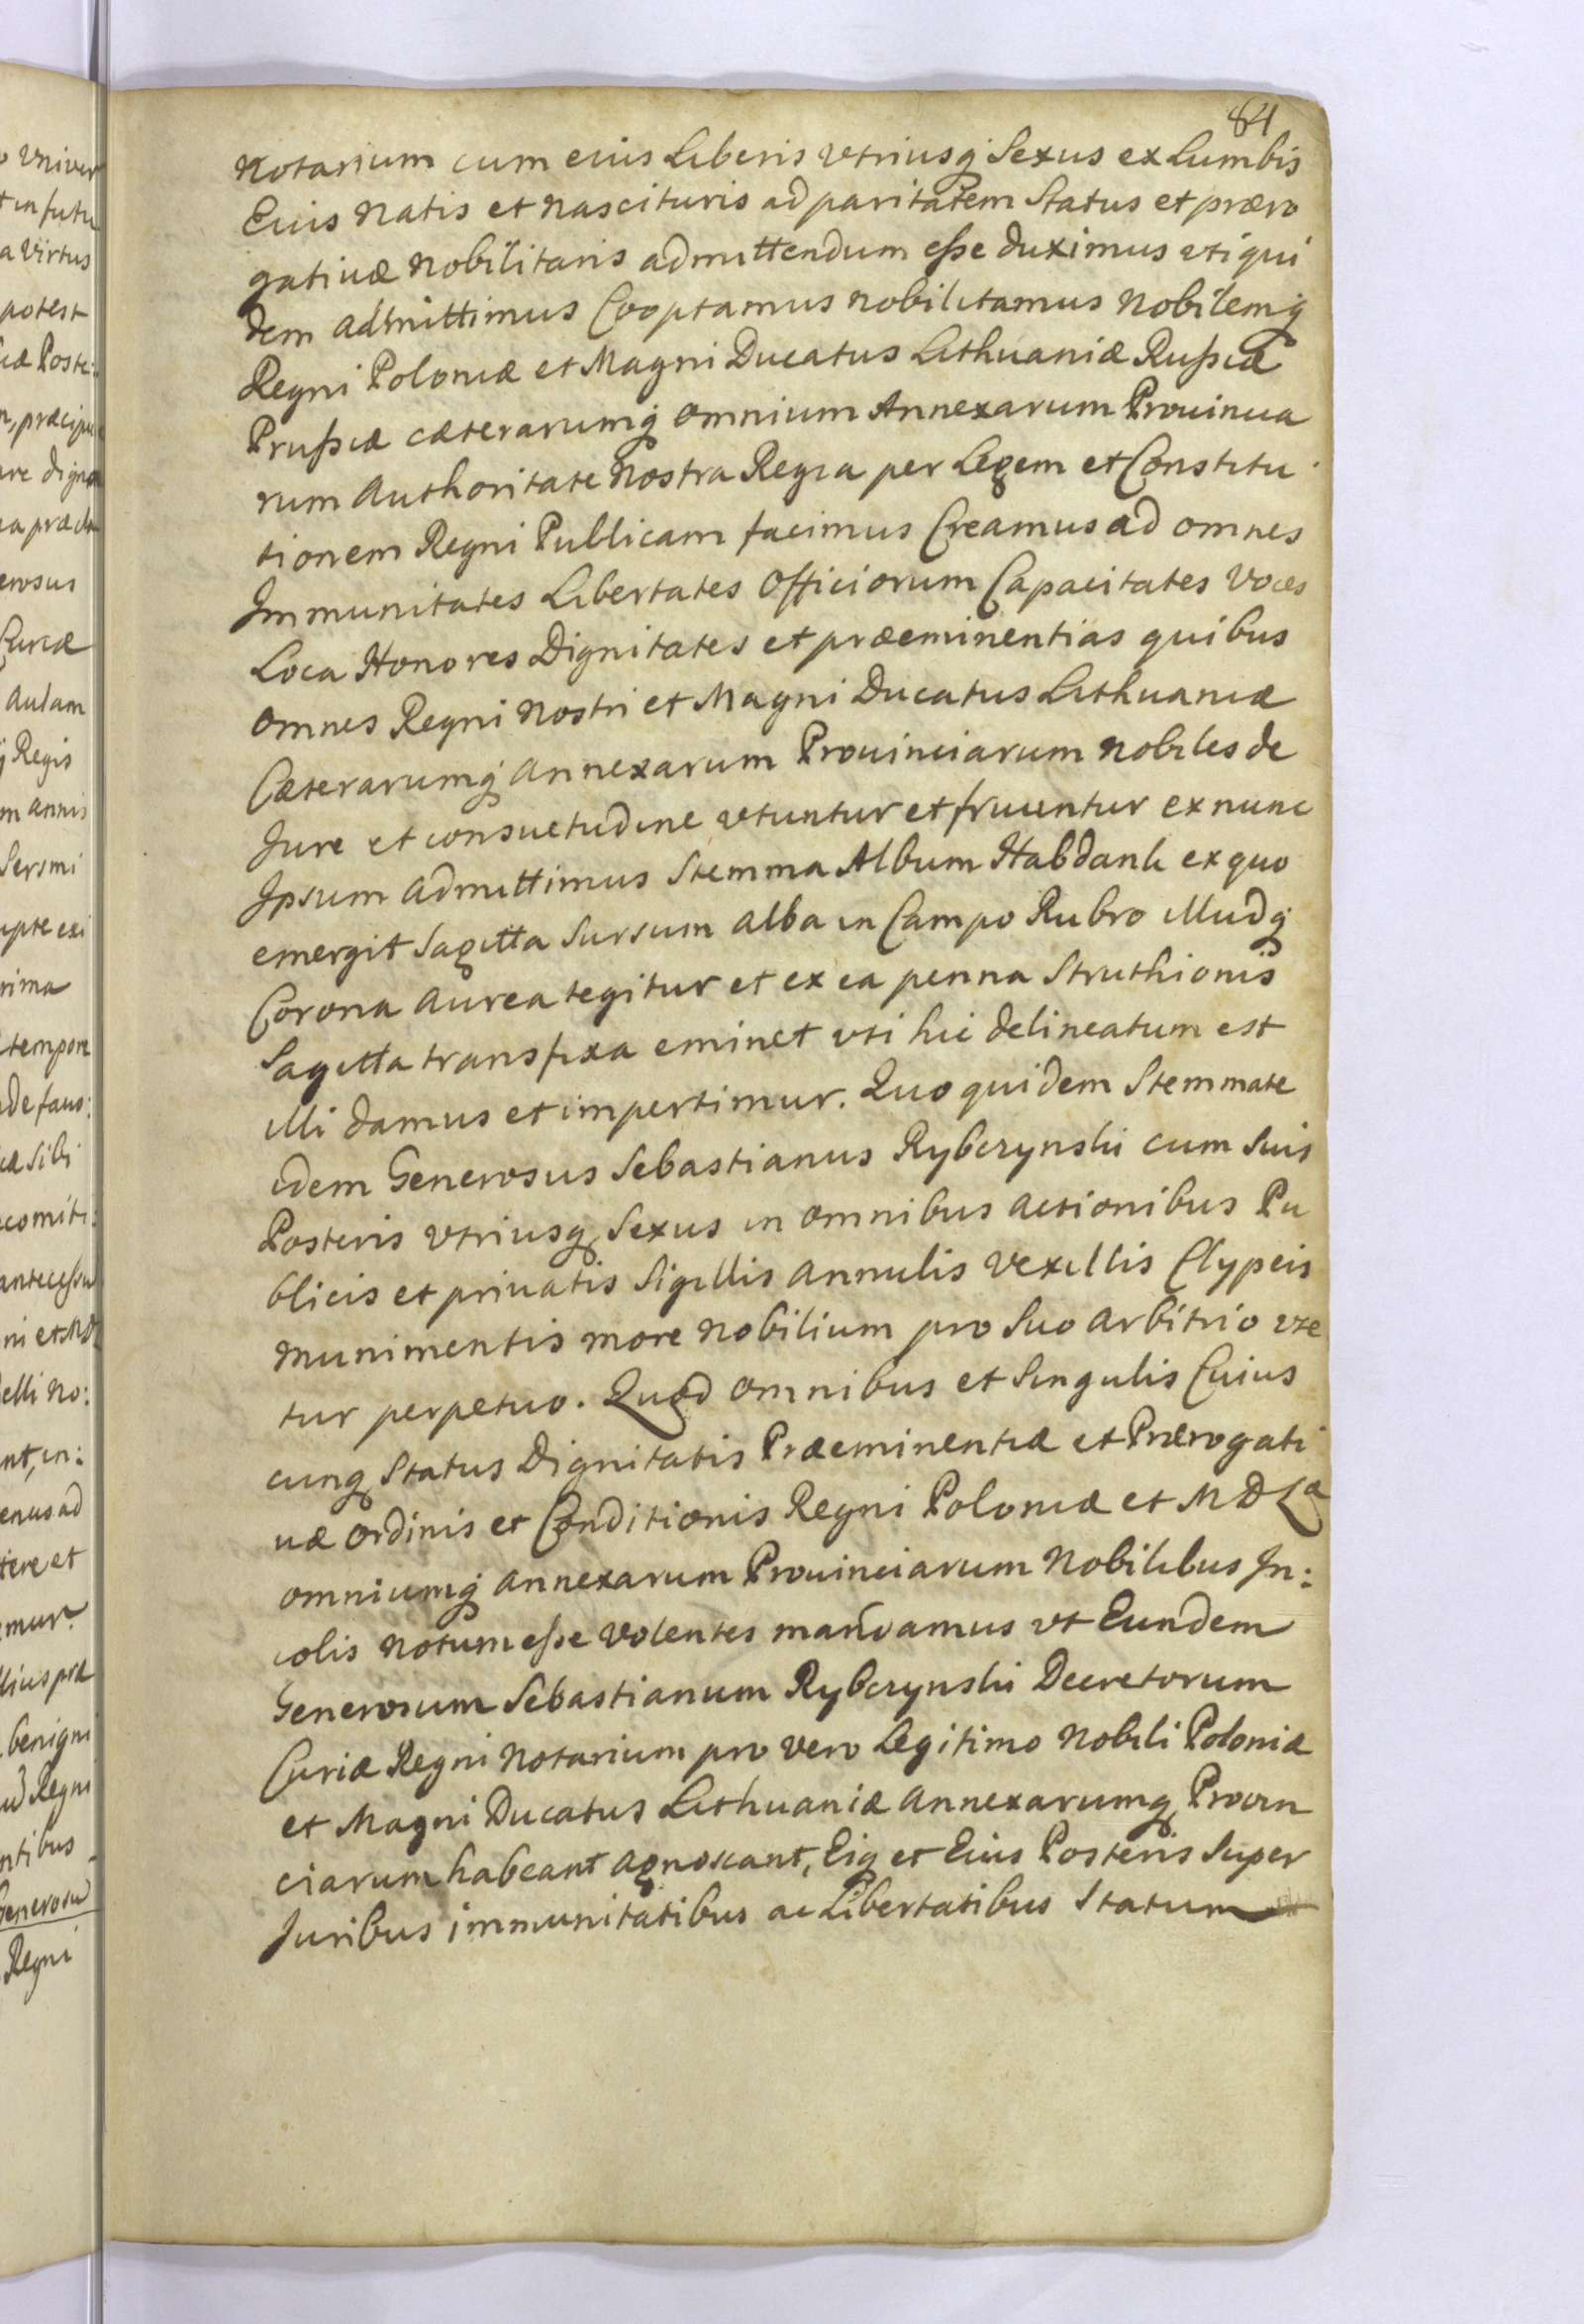 84
Notarium cum eius Liberis vtriusq́ Sexus ex Lumbis
Eius Natis et Nascituris ad paritatem Status et præro
gatiuæ Nobilitaris admittendum eſse duximus vti qui
dem admittimus Cooptamus Nobilitamus Nobilemq́
Regni Poloniæ et Magni Ducatus Lithuaniæ Ruſsiæ
Pruſsiæ cæterarumq́ omnium Annexarum Prouincia
rum Authoritate Nostra Regia per Legem et Constitu
tionem Regni Publicam facimus Creamus ad omnes
Immunitates Libertates Officiorum Capacitates Voces
Loca Honores Dignitates et præeminentias quibus
omnes Regni Nostri et Magni Ducatus Lithuaniæ
Cæterarumq́ annexarum Prouinciarum Nobiles de
Jure et consuetudine vtuntur et fruuntur ex nunc
Ipsum admittimus Stemma Album Habdank ex quo
emergit Sagitta Sursum alba in Campo Rubro illudq́
Corona aurea tegitur et ex ea penna Struthionis
Sagitta transfixa eminet vti hic delineatum est
illi damus et impertimur. Quo quidem Stemmate
idem Generosus Sebastianus Rybczynski cum Suis
Posteris vtriusq, Sexus in omnibus actionibus Pu
blicis et priuatis Sigillis annulis vexillis Clypeis
munimentis more Nobilium pro Suo arbitrio vte
tur perpetuo. Quod omnibus et Singulis Cuius
cunq, Status Dignitatis Præeminentiæ et Prærogati
uæ ordinis et Conditionis Regni Poloniæ et M D Læ
omniumq́ annexarum Prouinciarum Nobilibus In:
colis notum eſse volentes mandamus vt Eundem
Generosum Sebastianum Rybczynski Decretorum
Curiæ Regni Notarium pro vero Legitimo Nobili Poloniæ
et Magni Ducatus Lithuaniæ annexarumq, Prouin
ciarum habeant agnoscant, Eiq, et Eius Posteris Super
Juribus immunitatibus ac Libertatibus Statum